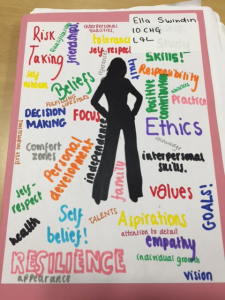 Ella Swindin
10 CHG
L4L
Risk
Taking
friendships!
interpersonal
tolerance
self-respect
Skills!
Responsibility
trust
Beliefs
DECISION
MAKING
FOCUS
positive
contributions
Practices
Ethics
independence
Comfort
zones
Personal
development
interpersonal
skills.
family
values
self-
respect
health
Self
belief!
TALENTS
Aspirations
attention to detail
empathy
GOALS!
individual growth
RESILIENCE
appearance
vision